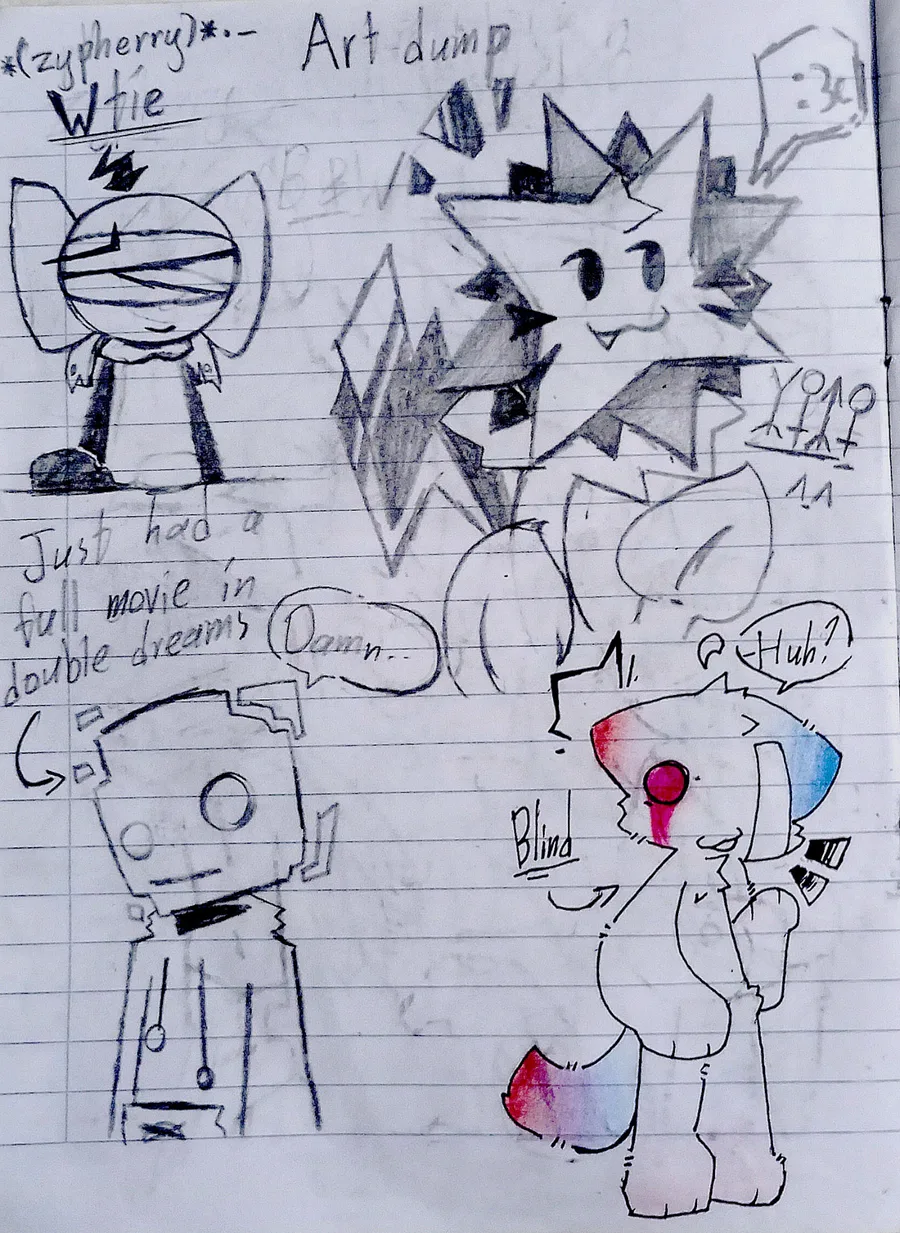 *(zypherry)*.-
Art dump
Wtie
:3c
1.1
Just had a
full movie in
double dreams
Damn..
Huh?
Blind